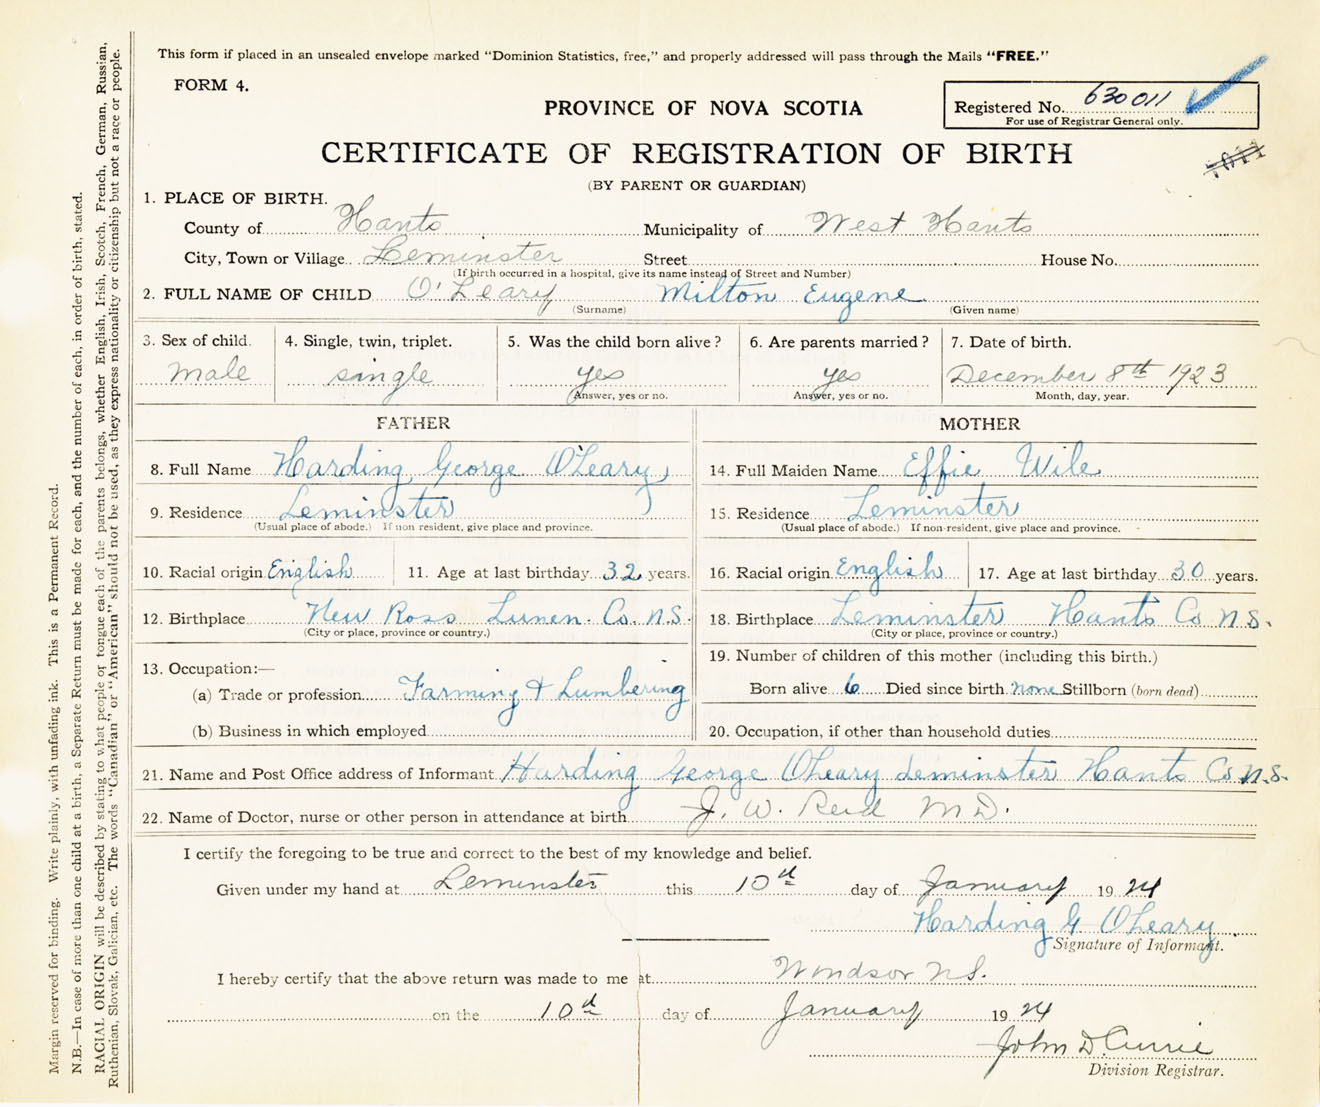 This form if placed in an unsealed envelope marked "Dominion Statistics, free," and properly addressed will pass through the Mails "FREE."
FORM 4.
Registered No. 630011
For use of Registrar General only.
PROVINCE OF NOVA SCOTIA
CERTIFICATE OF REGISTRATION OF BIRTH
(BY PARENT OR GUARDIAN)
1. PLACE OF BIRTH.
County of Hants Municipality of West Hants
City, Town or Village Leminster Street House No.
(If birth occurred in a hospital, give its name instead of Street and Number)
2. FULL NAME OF CHILD O'Leary Milton Eugene
(Surname) (Given name)
3. Sex of child. 4. Single, twin, triplet. 5. Was the child born alive? 6. Are parents married? 7. Date of birth.
male single yes yes December 8th 1923
Answer, yes or no. Answer, yes or no. Month, day, year.
FATHER MOTHER
8. Full Name Harding George O'Leary 14. Full Maiden Name Effie Wile
9. Residence Leminster 15. Residence Leminster
(Usual place of abode.) If non resident, give place and province. (Usual place of abode.) If non-resident, give place and province.
10. Racial origin English 11. Age at last birthday 32 years. 16. Racial origin English 17. Age at last birthday 30 years.
12. Birthplace New Ross Lunen. Co. N.S. 18. Birthplace Leminster Hants Co N.S.
(City or place, province or country.) (City or place, province or country.)
13. Occupation:— 19. Number of children of this mother (including this birth.)
(a) Trade or profession Farming & Lumbering Born alive 6 Died since birth none Stillborn (born dead)
(b) Business in which employed 20. Occupation, if other than household duties
21. Name and Post Office address of Informant Harding George O'Leary Leminster Hants Co N.S.
22. Name of Doctor, nurse or other person in attendance at birth J. W. Reid M D.
I certify the foregoing to be true and correct to the best of my knowledge and belief.
Given under my hand at Leminster this 10th day of January 1924
Harding G O'Leary
Signature of Informant.
I hereby certify that the above return was made to me at Windsor N.S.
on the 10th day of January 1924
John D. Currie
Division Registrar.
Margin reserved for binding. Write plainly, with unfading ink. This is a Permanent Record.
N.B.—In case of more than one child at a birth, a Separate Return must be made for each, and the number of each, in order of birth, stated.
RACIAL ORIGIN will be described by stating to what people or tongue each of the parents belongs, whether English, Irish, Scotch, French, German, Russian,
Ruthenian, Slovak, Galician, etc. The words "Canadian" or "American" should not be used, as they express nationality or citizenship but not a race or people.